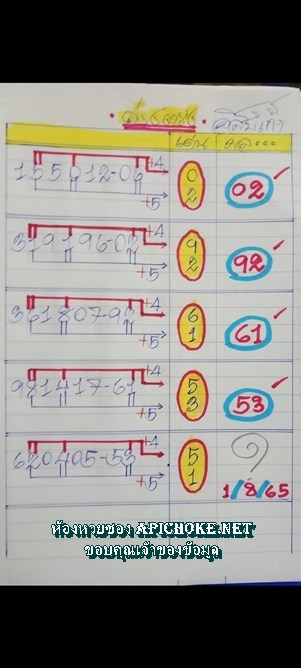 เด่น ผล...
155012-06 +4 +5 0 2 02
319196-02 +4 +5 9 2 92
361807-93 +4 +5 6 1 61
981417-61 +4 +5 5 3 53
620405-53 +4 +5 5 1 ?
1/8/65
ห้องหวยซอง APICHOKE.NET
ขอบคุณเจ้าของข้อมูล